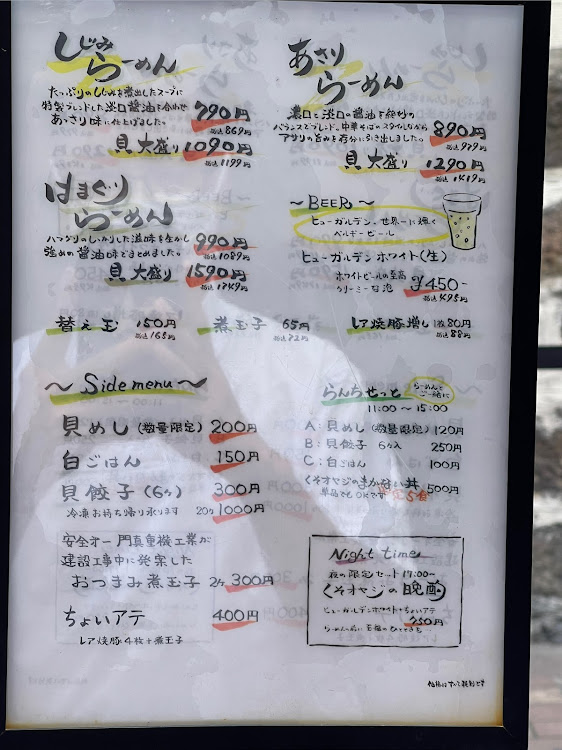 しじみ
らーめん
たっぷりのしじみを煮出したスープに
特製ブレンドした淡口醤油を合わせ
あっさり味に仕上げました。
790円
税込869円
貝大盛り1090円
税込1199円
あさり
らーめん
濃口と淡口の醤油を絶妙の
バランスでブレンド。中華そばのスタイルながら
アサリの旨みを存分に引き出しました。
890円
税込979円
貝大盛り1290円
税込1419円
はまぐり
らーめん
ハマグリのしっかりした滋味を生かし
強めの醤油味でまとめました。
990円
税込1089円
貝大盛り1590円
税込1749円
~BEER~
ヒューガルデン、世界一に輝く
ベルギービール
ヒューガルデンホワイト(生)
ホワイトビールの至高
クリーミーな泡
¥450-
税込¥495
替え玉 150円
税込165円
煮玉子 65円
税込72円
レア焼豚増し 1枚80円
税込88円
~Side menu~
貝めし(数量限定) 200円
白ごはん 150円
貝餃子(6ヶ) 300円
冷凍お持ち帰り承ります 20ヶ1000円
安全オー門真重機工業が
建設工事中に発案した
おつまみ煮玉子 2ヶ300円
ちょいアテ 400円
レア焼豚4枚+煮玉子
らんちせっと
らーめんと
ご一緒に
11:00~15:00
A:貝めし(数量限定) 120円
B:貝餃子 6ヶ入 250円
C:白ごはん 100円
くそオヤジのまかない丼 500円
単品でもOKです 限定5食
Night time
夜の限定セット17:00~
くそオヤジの晩酌
ヒューガルデンホワイト+ちょいアテ
750円
らーめんの前に至福のひとときを
価格はすべて税別です